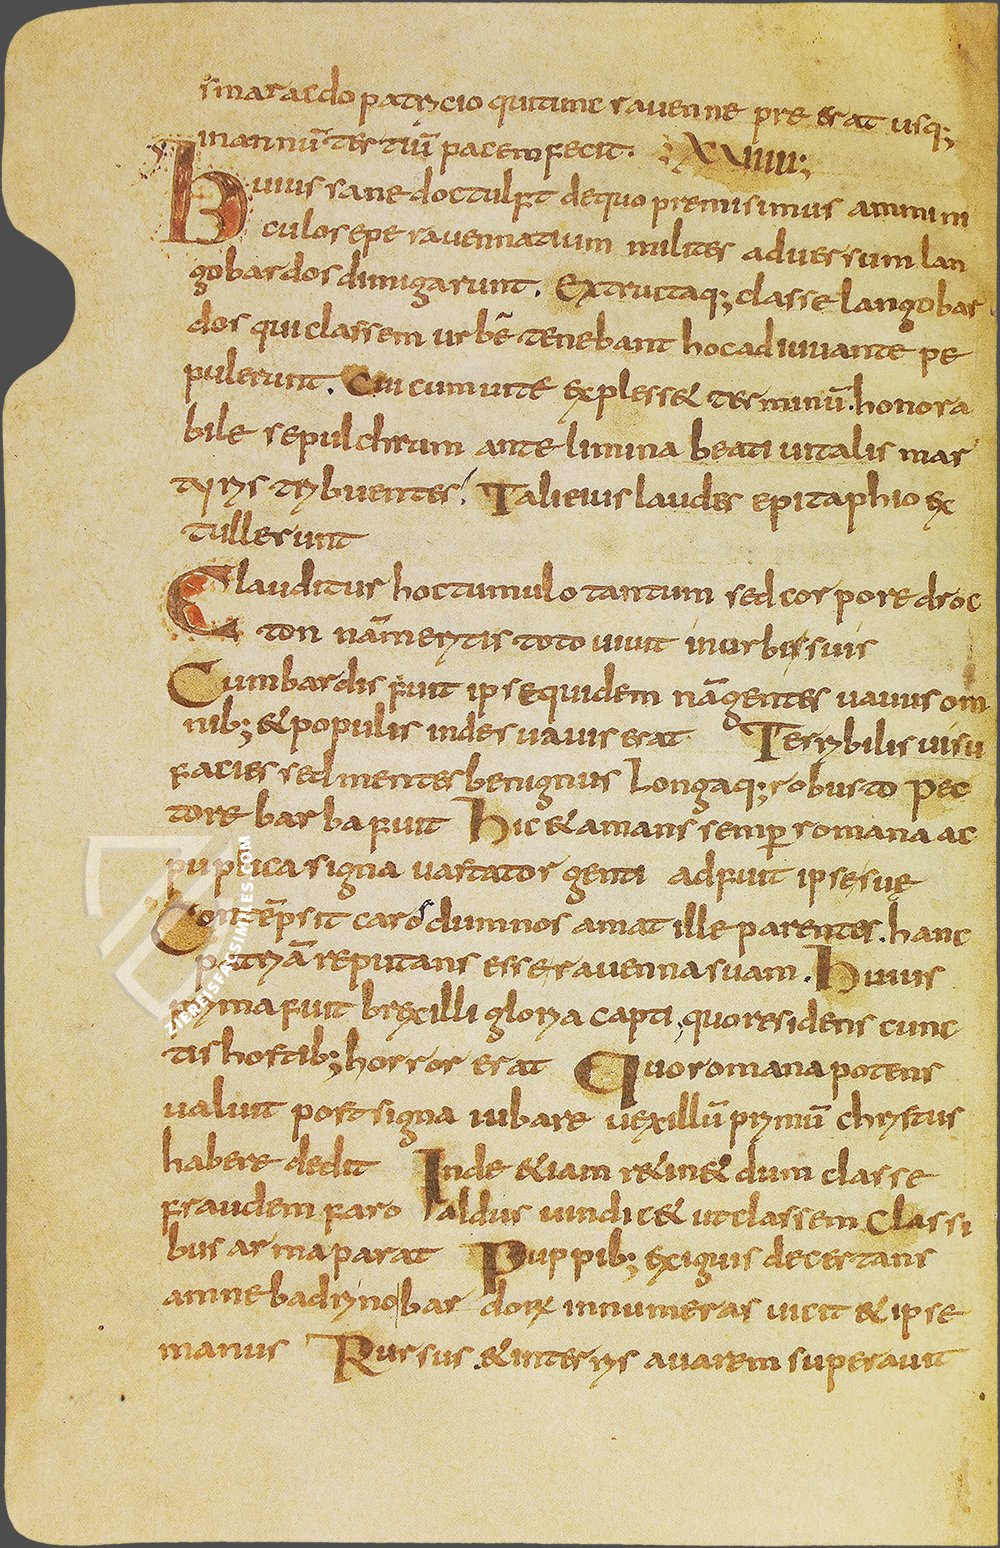 smaracdo patricio qui tunc ravenne pre erat usq;
in annū tertiū pacem fecit. ; XVIIII;
Huius sane doctulft de quo premisimus ammini
culo sepe ravennatium milites adversum lan
gobardos dimigarunt. Extructaq; classe langobar
dos qui classem urbē tenebant hoc adiuvante pe
pulerunt. Cui cum vite explesset terminū. honora
bile sepulchrum ante limina beati vitalis mar
tyris tribuentes. Tali eius laudes epitaphio ex
tullerunt
Clauditur hoc tumulo tantum sed corpore droc
ton nām meritis toto vivit in urbis suis
Cum bardis fuit ipse quidem nā gentes vavus om
nib; & populis inde suavis erat Terribilis visu
facies sed mentes benignus Longaq; robusto pec
tore barba fuit Hic & amans semp romana ac
puplica signa vastator genti adfuit ipse suę
Contēpsit caros dum nos amat ille parentes. hanc
patriā reputans esse ravenna suam. Huius
prima fuit brixilli gloria capti, quo residens cunc
tis hostib; horror erat Quo romana potens
valuit post signa iubare vexillū primū christus
habere dedit Inde &iam r&in& dum classe
fraudem faro aldus vindic& ut classem classi
bus arma parat Puppib; exiguis decertans
amne badrino bar dorx innumeras vicit & ipse
manus Rursus & interris avarem superavit
ZIEREISFACSIMILES.COM